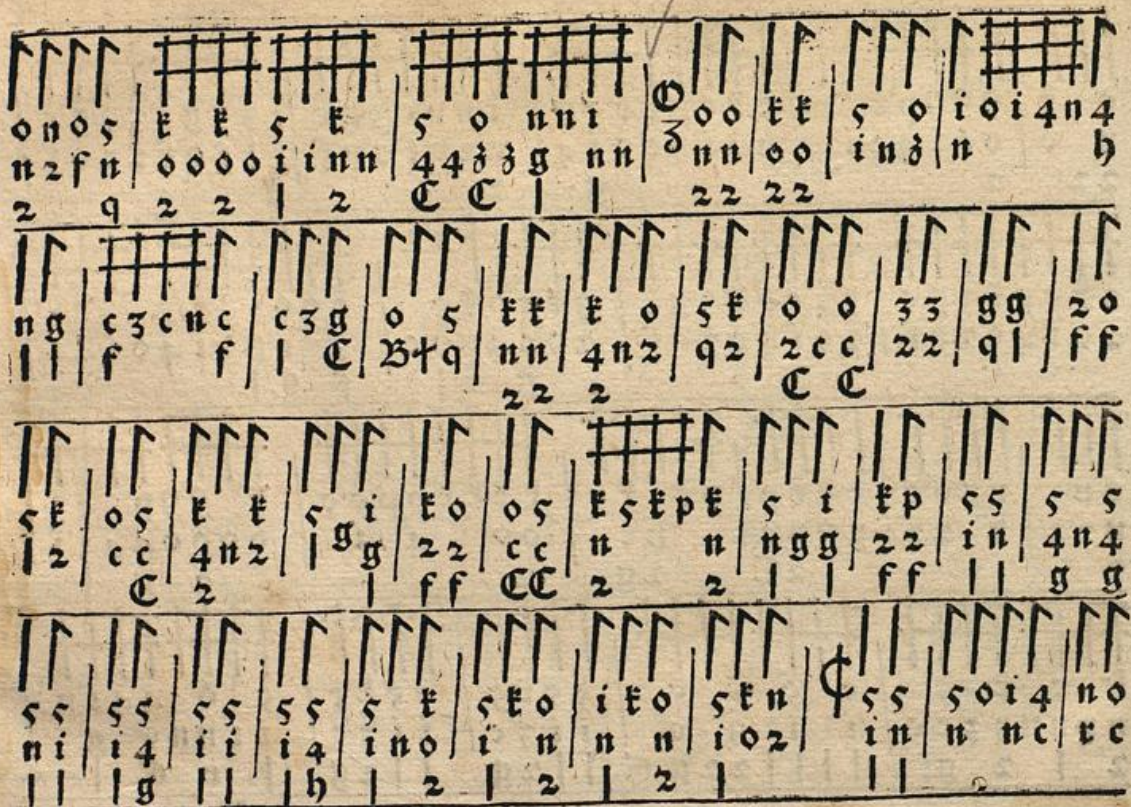 o n o 5 k k 5 k 5 o n n i O o o k k 5 o i o i 4 n 4
n 2 f n o o o o i i n n 4 4 z z g n n 3 n n o o i n z n h
2 q 2 2 | 2 C C | | 2 2 2 2
n g c 3 c n c c 3 g o 5 k k k o 5 k o o 3 3 g g 2 o
| | f f | C B + q n n 4 n 2 q 2 2 c c 2 2 q | f f
2 2 2 C C
5 k o 5 k k 5 g i k o o 5 k 5 k p k 5 i k p 5 5 5 5
| 2 c c 4 n 2 | g 2 2 c c n n n g g 2 2 i n 4 n 4
C 2 | f f C C 2 2 | | f f | | g g
5 5 5 5 5 5 5 5 5 k 5 k o i k o 5 k n ₵ 5 5 5 o i 4 n o
n i i 4 i i i 4 i n o i n n n i o 2 i n n n c r c
| | | g | | | h | 2 | 2 | 2 | | |